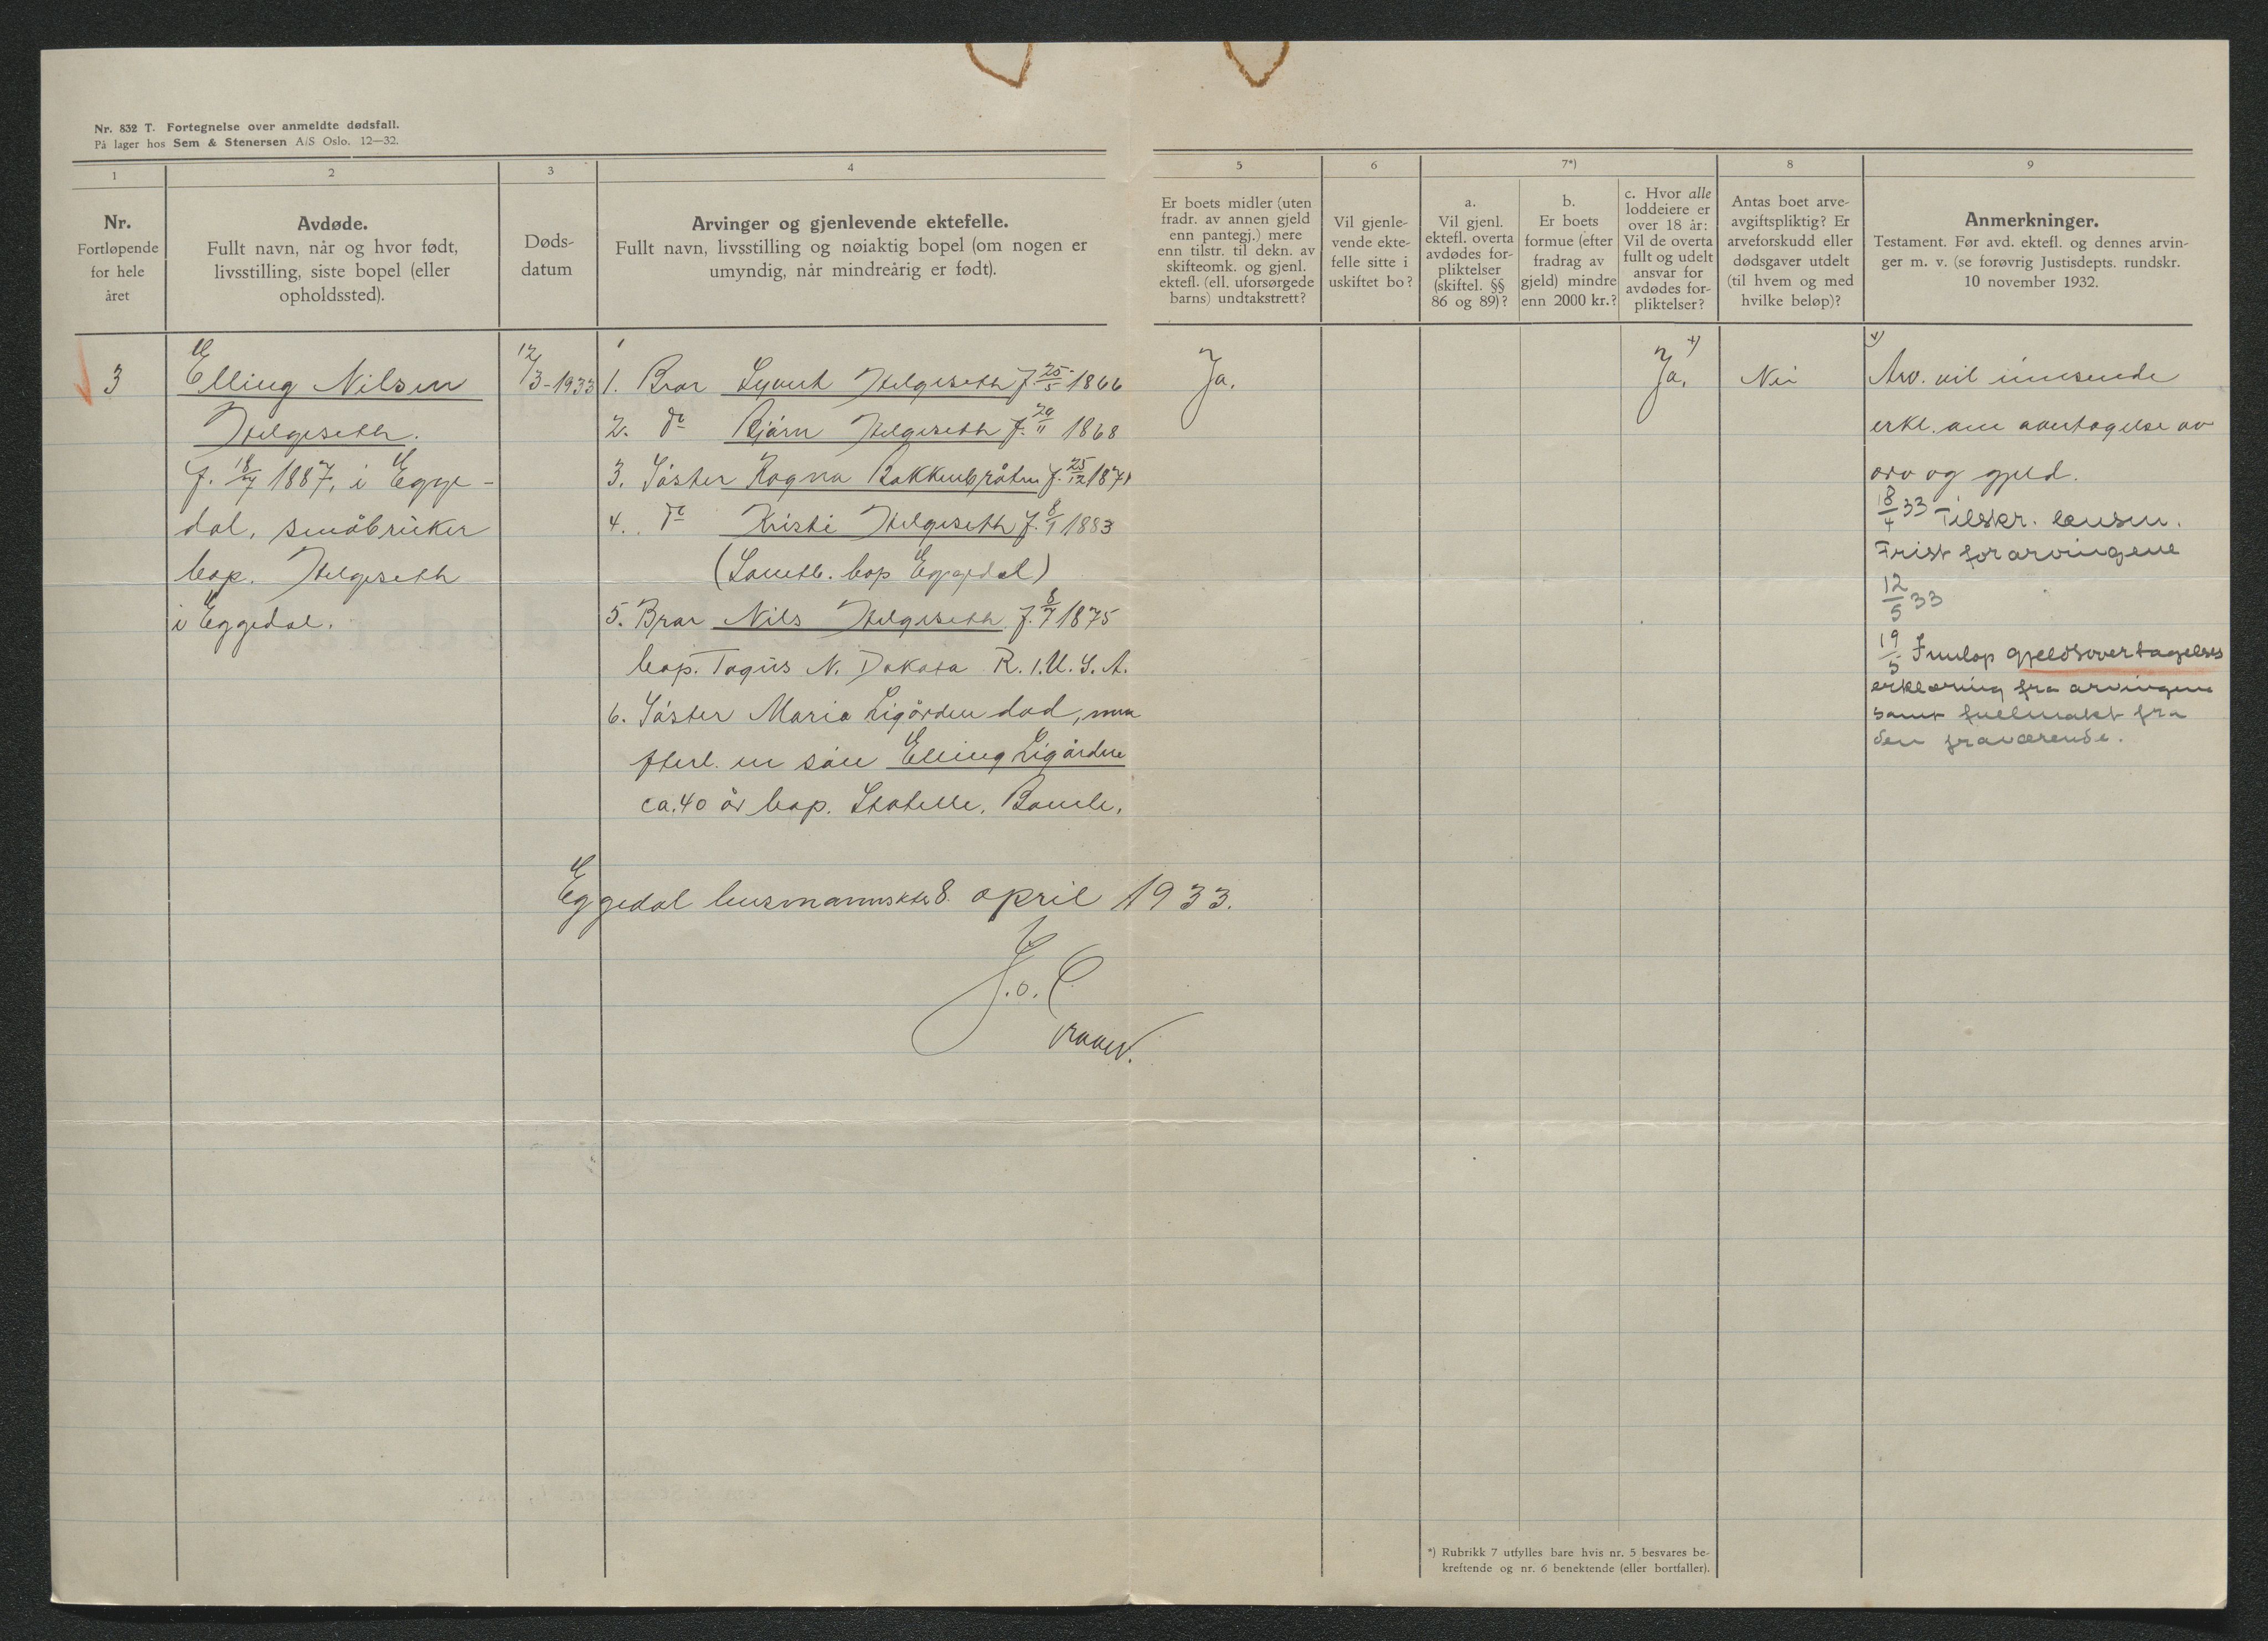 Nr. 832 T. Fortegnelse over anmeldte dødsfall.
På lager hos Sem & Stenersen A/S Oslo. 12—32.
1
Nr.
Fortløpende
for hele
året
2
Avdøde.
Fullt navn, når og hvor født,
livsstilling, siste bopel (eller
opholdssted).
3
Døds-
datum
4
Arvinger og gjenlevende ektefelle.
Fullt navn, livsstilling og nøiaktig bopel (om nogen er
umyndig, når mindreårig er født).
5
Er boets midler (uten
fradr. av annen gjeld
enn pantegj.) mere
enn tilstr. til dekn. av
skifteomk. og gjenl.
ektefl. (ell. uforsørgede
barns) undtakstrett?
6
Vil gjenle-
vende ekte-
felle sitte i
uskiftet bo?
7*)
a.
Vil gjenl.
ektefl. overta
avdødes for-
pliktelser
(skiftel. §§
86 og 89)?
b.
Er boets
formue (efter
fradrag av
gjeld) mindre
enn 2000 kr.?
c. Hvor alle
loddeiere er
over 18 år:
Vil de overta
fullt og udelt
ansvar for
avdødes for-
pliktelser?
8
Antas boet arve-
avgiftspliktig? Er
arveforskudd eller
dødsgaver utdelt
(til hvem og med
hvilke beløp)?
9
Anmerkninger.
Testament. Før avd. ektefl. og dennes arvin-
ger m. v. (se forøvrig Justisdepts. rundskr.
10 november 1932.
3
Elling Nilsen
Helgeseth.
f. 18/7 1887, i Egge-
dal, småbruker
bop. Helgeseth
i Eggedal.
12/3-1933
1. Bror Syvert Helgeseth f. 25/5-1866
2. do Bjørn Helgeseth f. 29/11 1868
3. Søster Ragna Bakkenbråten f. 25/12 1871
4. do Kristi Helgeseth f. 8/1 1883
(Samtl. bop Eggedal)
5. Bror Nils Helgeseth f. 8/7 1875
bop. Tagus N. Dakota R.1.U.S.A.
6. Søster Maria Ligården død, men
efterl. en søn Elling Ligården
ca. 40 år bop. Statelle, Bamle.
Ja.
Ja. x)
Nei
x)
Arv. vil innsende
erkl. om overtagelse av
arv og gjeld.
18/4 33 Tilskr. lensm.
Frist for arvingene
12/5 33
19/5 Innlop gjeldsovertagelses
erklæring fra arvingene
samt fullmakt fra
den fraværende.
Eggedal lensmannsktr 8. april 1933.
*) Rubrikk 7 utfylles bare hvis nr. 5 besvares be-
kreftende og nr. 6 benektende (eller bortfaller).